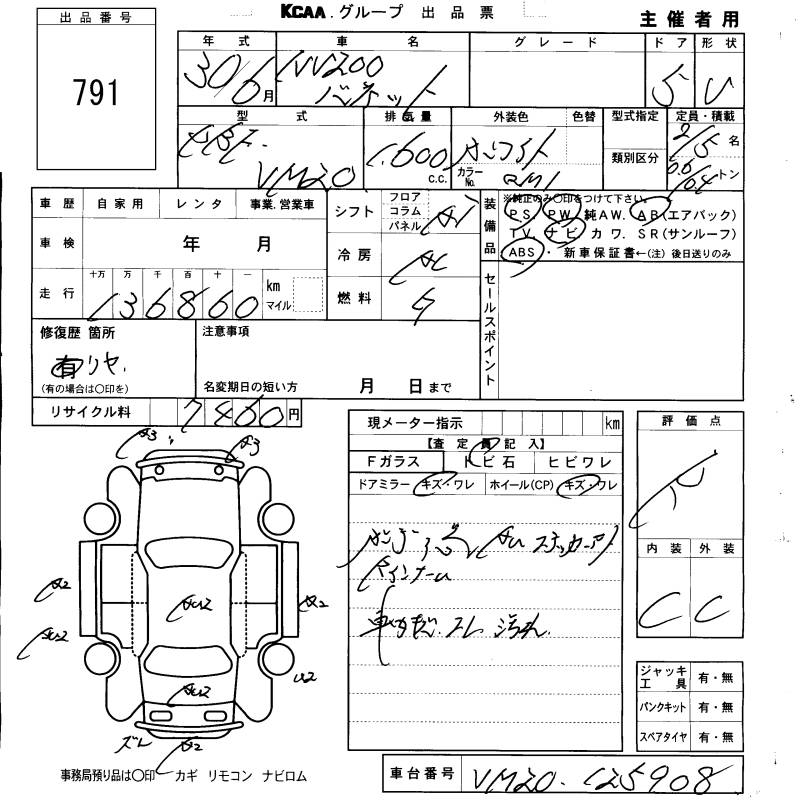 KCAA.グループ 出品票 主催者用
出品番号
791
年式 車名 グレード ドア 形状
30/6月 NV200 5 V
バネット
型式 排気量 外装色 色替 型式指定 定員・積載
類別区分
DBF-VM20 1,600 c.c. ホワイト カラーNo. QM1 2/5名
0.6/0.4トン
車歴 自家用 レンタ 事業.営業車
シフト フロア コラム パネル AT
装備品 ※純正のみ○印をつけて下さい。
PS. PW. 純AW. AB(エアバック)
TV. ナビ カワ. SR(サンルーフ)
ABS・ 新車保証書←(注) 後日送りのみ
車検 年 月
冷房 AC
走行 十万 万 千 百 十 一
136860 km マイル
燃料 G
セールスポイント
修復歴 箇所
有 リヤ.
(有の場合は○印を)
注意事項
名変期日の短い方 月 日まで
リサイクル料 7400円
現メーター指示 km
【査定員記入】
Fガラス トビ石 ヒビワレ
ドアミラー キズ・ワレ ホイール(CP) キズ・ワレ
評価点
R
内装 外装
C C
A3 A3
A2 AU2 A2
AU2 U2
AU2
ズレ A2
ステッカーアト
車内 汚れ.
ジャッキ工具 有・無
パンクキット 有・無
スペアタイヤ 有・無
事務局預り品は○印 カギ リモコン ナビロム
車台番号 VM20-125908